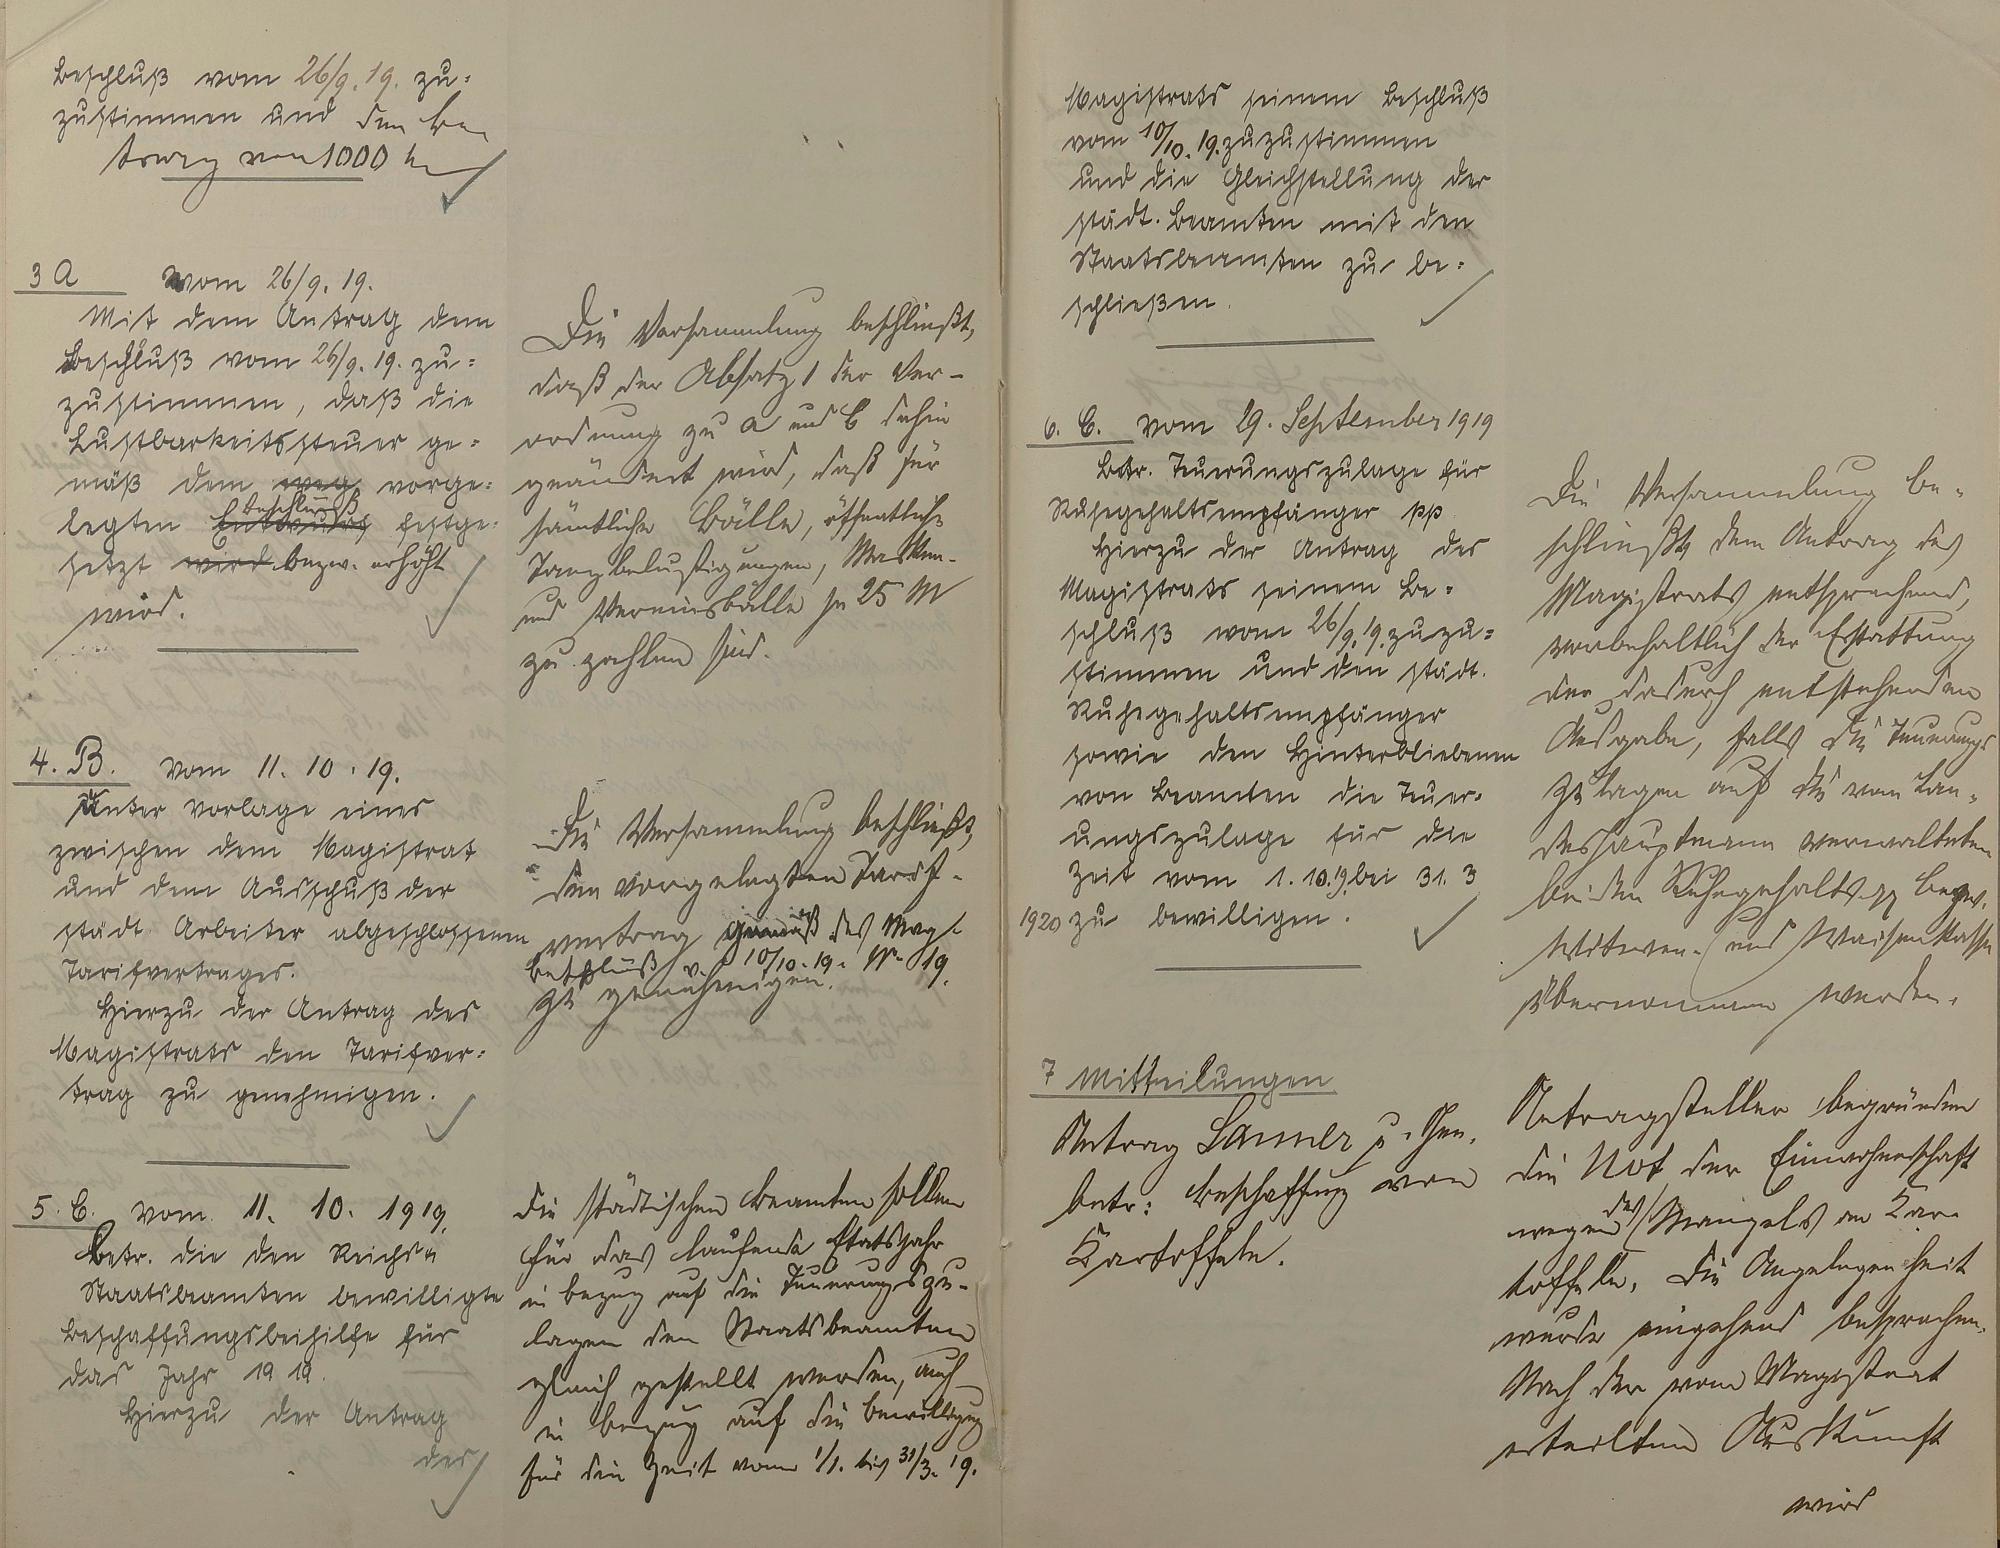 Beschluß vom 26/9. 19. zu-
zustimmen und den Be-
trag von 1000 M
3 A vom 26/9. 19.
Mit dem Antrag dem
Beschluß vom 26/9. 19. zu-
zustimmen, daß die
Lustbarkeitssteuer ge-
mäß dem vorge-
legten Beschluß Entwurf festge-
setzt wird bezw. erhöht
wird.
Die Versammlung beschließt,
daß der Absatz 1 der Ver-
ordnung zu a und b dahin
geändert wird, daß für
sämtliche Bälle, öffentliche
Tanzbelustigungen, Masken-
und Vereinsbälle je 25 M
zu zahlen sind.
4. B. vom 11. 10. 19.
Unter Vorlage eines
zwischen dem Magistrat
und dem Ausschuß der
städt. Arbeiter abgeschlossenen
Tarifvertrages.
Hierzu der Antrag des
Magistrats den Tarifver-
trag zu genehmigen.
Die Versammlung beschließt,
den vorgelegten Tarif-
vertrag gemäß des Mag.
Beschluß v. 10/10. 19. 19.
zu genehmigen.
5. C. vom 11. 10. 1919.
Betr. die den Reichs u
Staatsbeamten bewilligte
Beschaffungsbeihilfe für
das Jahr 1919.
Hierzu der Antrag
des
Die städtischen Beamten sollen
für das laufende Etatsjahr
in bezug auf die Teuerungszu-
lagen den Staatsbeamten
gleich gestellt werden, auch
in bezug auf die Bewilligung
für die Zeit vom 1/1. bis 31/3. 19.
Magistrats seinem Beschluß
vom 10/10. 19. zuzustimmen
und die Gleichstellung der
städt. Beamten mit den
Staatsbeamten zu be-
schließen.
6. C. vom 29. September 1919
Betr. Teuerungszulage für
Ruhegehaltsempfänger pp
Hierzu der Antrag des
Magistrats seinem Be-
schluß vom 26/9. 19. zuzu-
stimmen und den städt.
Ruhegehaltsempfänger
sowie den Hinterbliebenen
von Beamten die Teuer-
ungszulage für die
Zeit vom 1. 10. 19 bei 31. 3
1920 zu bewilligen.
Die Versammlung be-
schließt, dem Antrag des
Magistrats entsprechend,
vorbehaltlich der Erstattung
der dadurch entstehenden
Ausgabe, falls die Teuerungs
zulagen auf die vom Lan-
deshauptmann verwalteten
beiden Ruhegehalts- bezw.
Witwen- und Waisenkasse
übernommen werden.
7 Mitteilungen
Antrag u. Gen.
betr: Beschaffung von
Kartoffeln.
Antragsteller begründen
die Not der Einwohnerschaft
wegen des Mangels an Kar-
toffeln. Die Angelegenheit
wurde eingehend besprochen.
Nach der vom Magistrat
erteilten Auskunft
wird